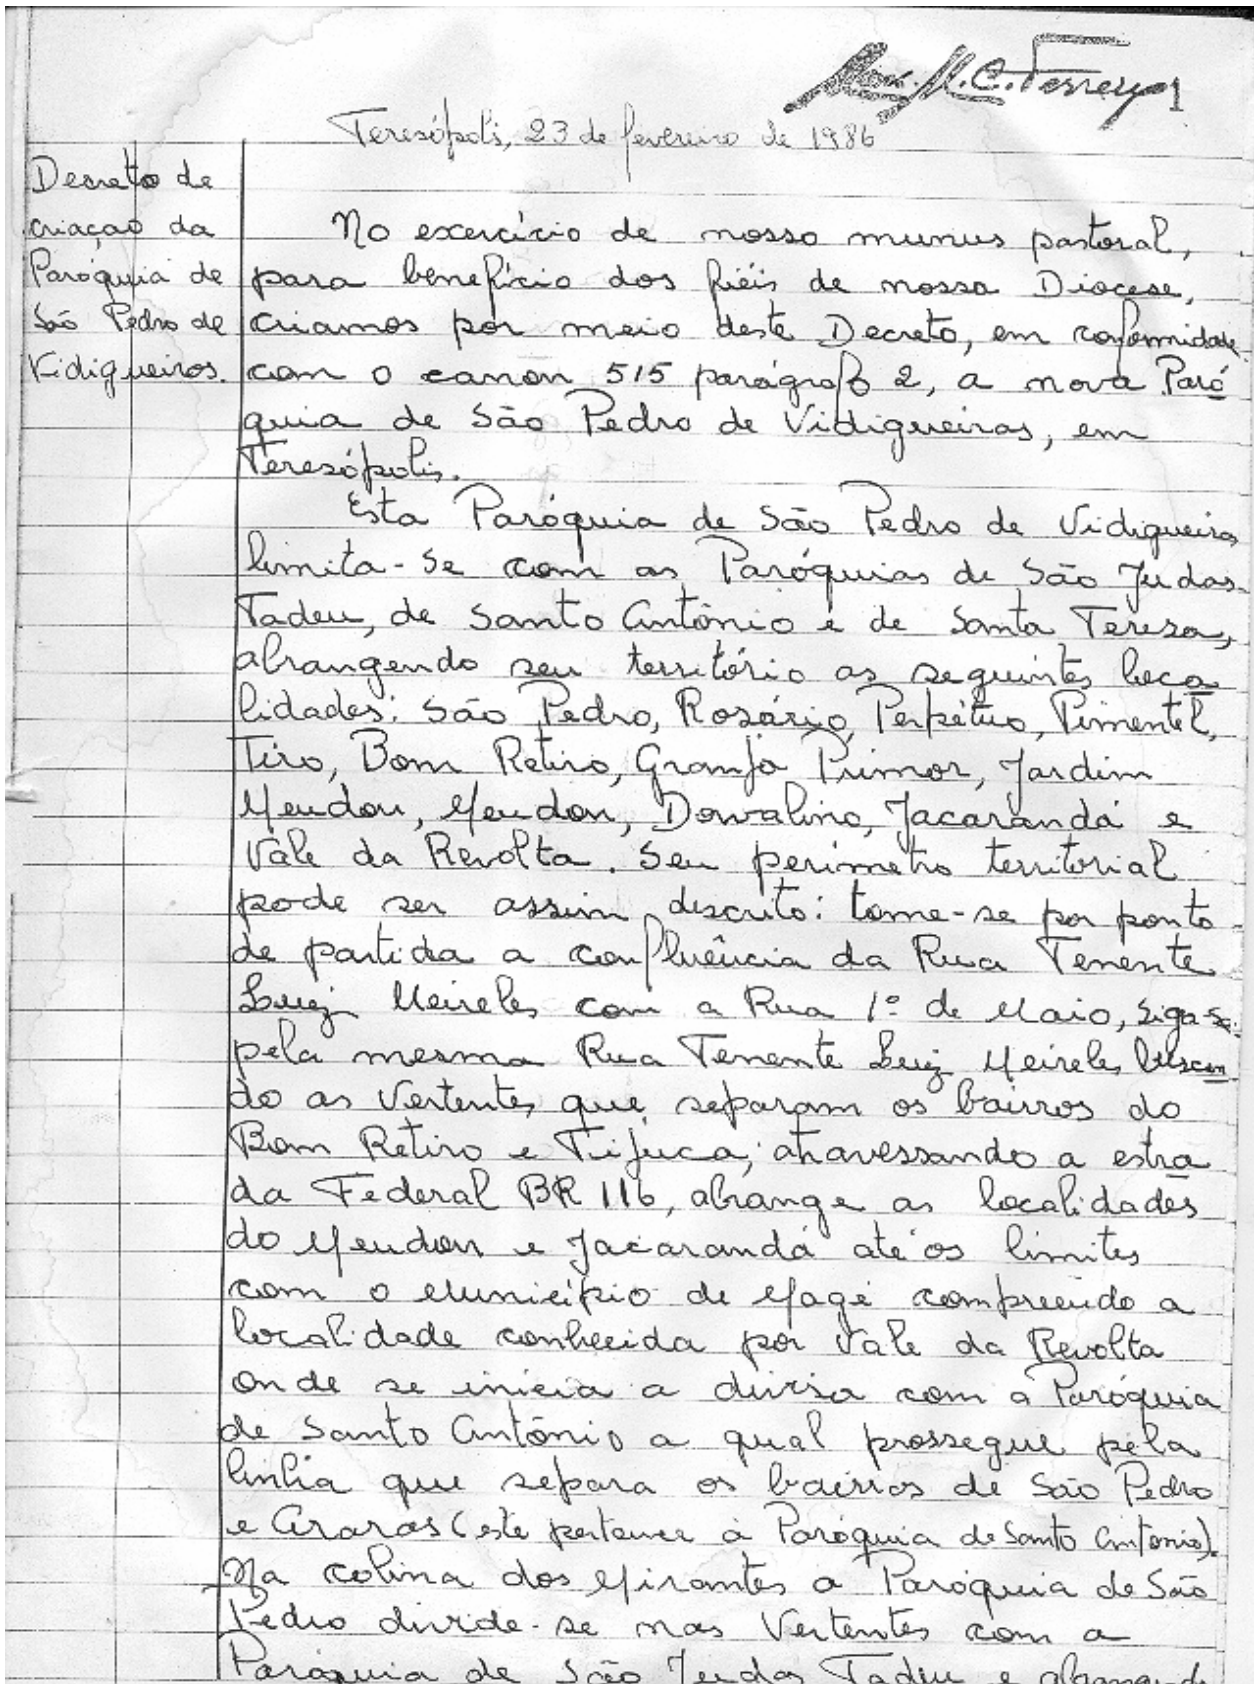 Mons. M. C. Ferreyra 1
Teresópolis, 23 de fevereiro de 1986
Decreto de
criação da
Paróquia de
São Pedro de
Vidigueiros.
No exercício de nosso munus pastoral,
para benefício dos fiéis de nossa Diocese,
criamos por meio deste Decreto, em conformidade
com o canon 515 parágrafo 2, a nova Paró
quia de São Pedro de Vidigueiras, em
Teresópolis.
Esta Paróquia de São Pedro de Vidigueiras
limita-se com as Paróquias de São Judas
Tadeu, de Santo Antônio e de Santa Teresa,
abrangendo seu território as seguintes loca
lidades: São Pedro, Rosário, Perpétuo, Pimentel,
Tiro, Bom Retiro, Granja Primor, Jardim
Meudon, Meudon, Dorvalino, Jacarandá e
Vale da Revolta. Seu perímetro territorial
pode ser assim descrito: tome-se por ponto
de partida a confluência da Rua Tenente
Luiz Meireles com a Rua 1º de Maio, siga-se
pela mesma Rua Tenente Luiz Meireles buscan
do as Vertentes que separam os bairros do
Bom Retiro e Tijuca; atravessando a estra
da Federal BR 116, abrange as localidades
do Meudon e Jacarandá até os limites
com o Município de Magé compreendo a
localidade conhecida por Vale da Revolta
onde se inicia a divisa com a Paróquia
de Santo Antônio a qual prossegue pela
linha que separa os bairros de São Pedro
e Araras (este pertence à Paróquia de Santo Antonio).
Na colina dos Mirantes a Paróquia de São
Pedro divide-se nas Vertentes com a
Paróquia de São Judas Tadeu e